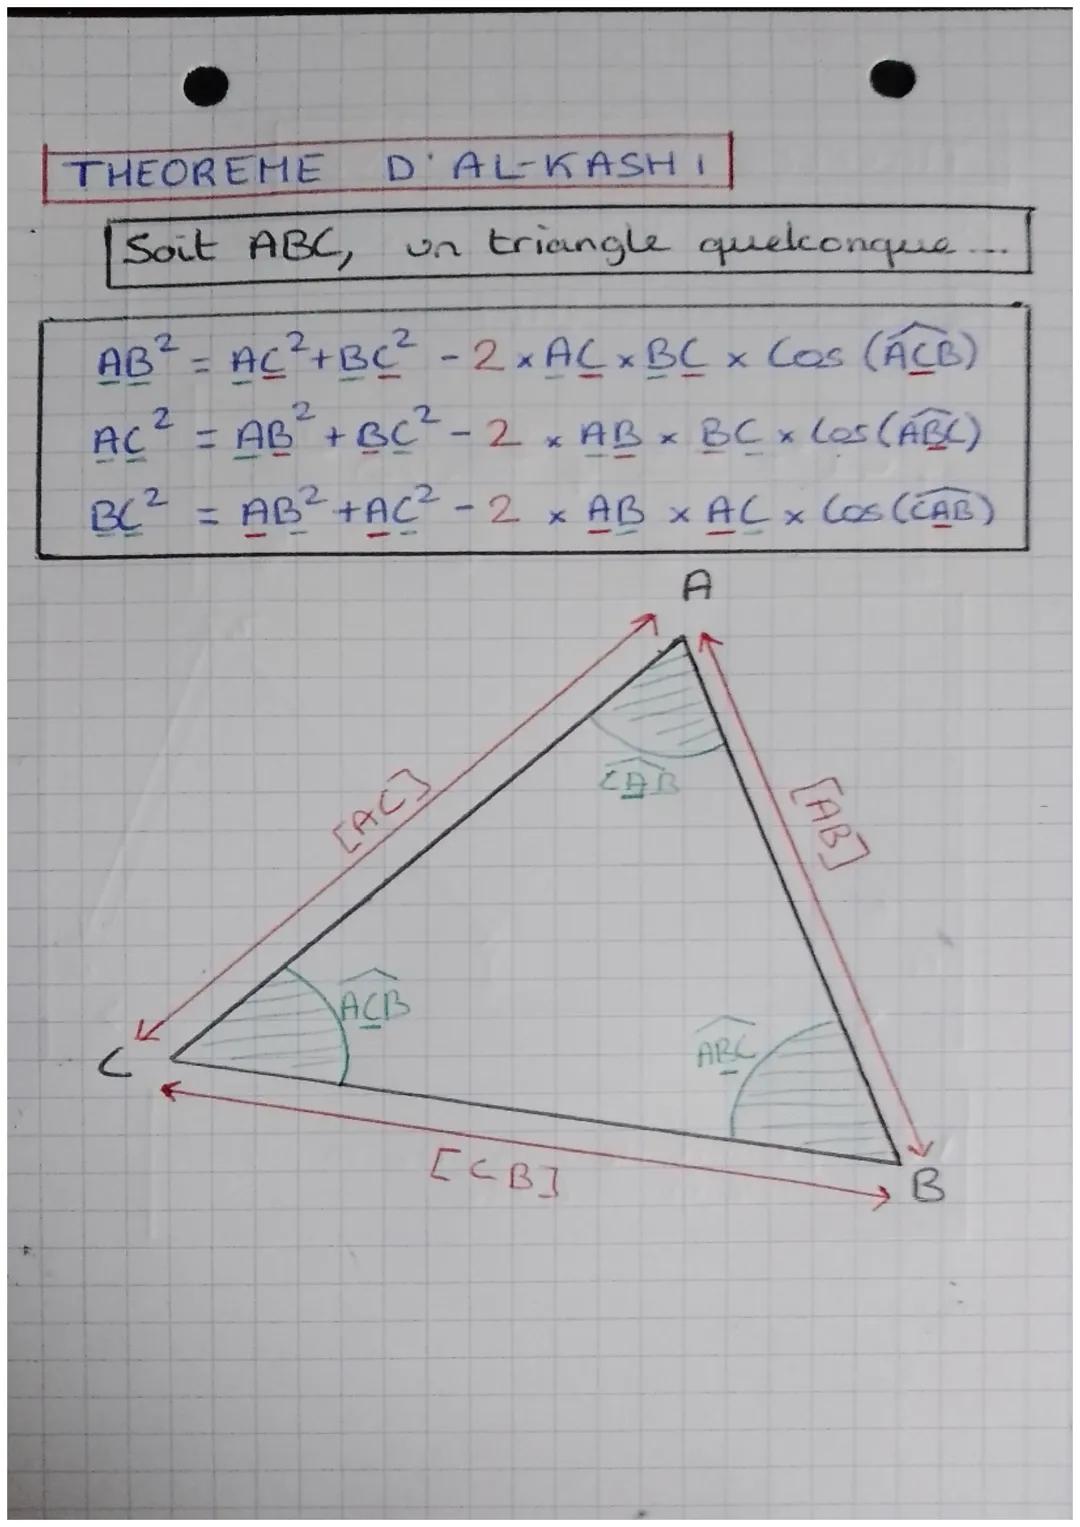 THEOREME D'AL-KASHI
Soit ABC, un triangle quelconque...
AB² = AC² + BC² - 2 × AC × BC × Cos (ACB)
AC² = AB² + BC² - 2 × AB × BC × Cos (ABC)
BC² = AB² + AC² - 2 × AB × AC × Cos (CAB)
A
CAB
[AC]
[AB]
ACB
ABC
C
[CB]
B